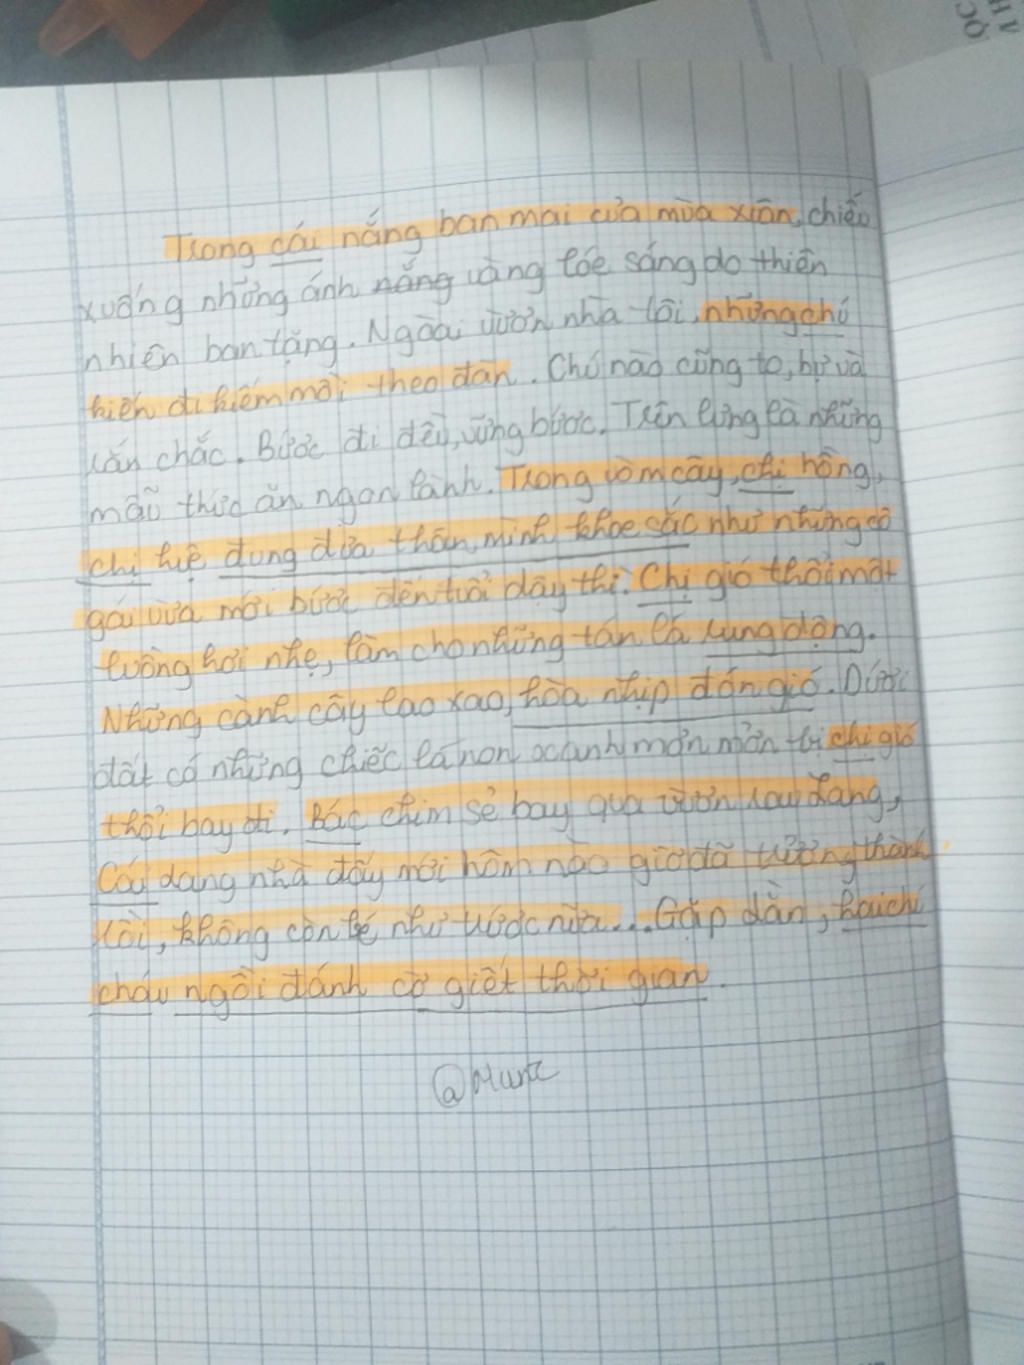 Trong cái nắng ban mai của mùa xuân, chiếu
xuống những ánh nắng vàng lóe sáng do thiên
nhiên ban tặng. Ngoài vườn nhà tôi, những chú
kiến đi kiếm mồi theo đàn. Chú nào cũng to, bự và
rắn chắc. Bước đi đều, vững bước. Trên lưng là những
mẫu thức ăn ngon lành. Trong vòm cây, chị hồng,
chị huệ đung đưa thân mình khoe sắc như những cô
gái vừa mới bước đến tuổi dậy thì. Chị gió thổi một
luồng hơi nhẹ, làm cho những tán lá rung động.
Những cành cây lao xao, hòa nhịp đón gió. Dưới
đất có những chiếc lá non xanh mơn mởn bị chị gió
thổi bay đi. Bác chim sẻ bay qua vườn rau lang,
Cậu dang nhà đấy mới hôm nào giờ đã trưởng thành
rồi, không còn bé như trước nữa... Gặp dần, hai chú
cháu ngồi đánh cờ giết thời gian.